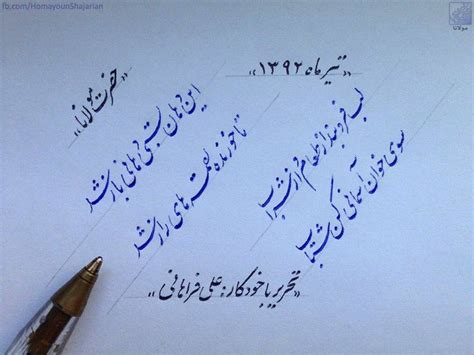 fb.com/HomayounShajarian
مولانا
«تیر ماه ۱۳۹۲»
«حضرت مولانا»
این دهان بستی دهانی باز شد
تا خورنده لقمه های راز شد
لب فرو بند از طعام و از شراب
سوی خوان آسمانی کن شتاب
«تحریر با خودکار: علی فراهانی»